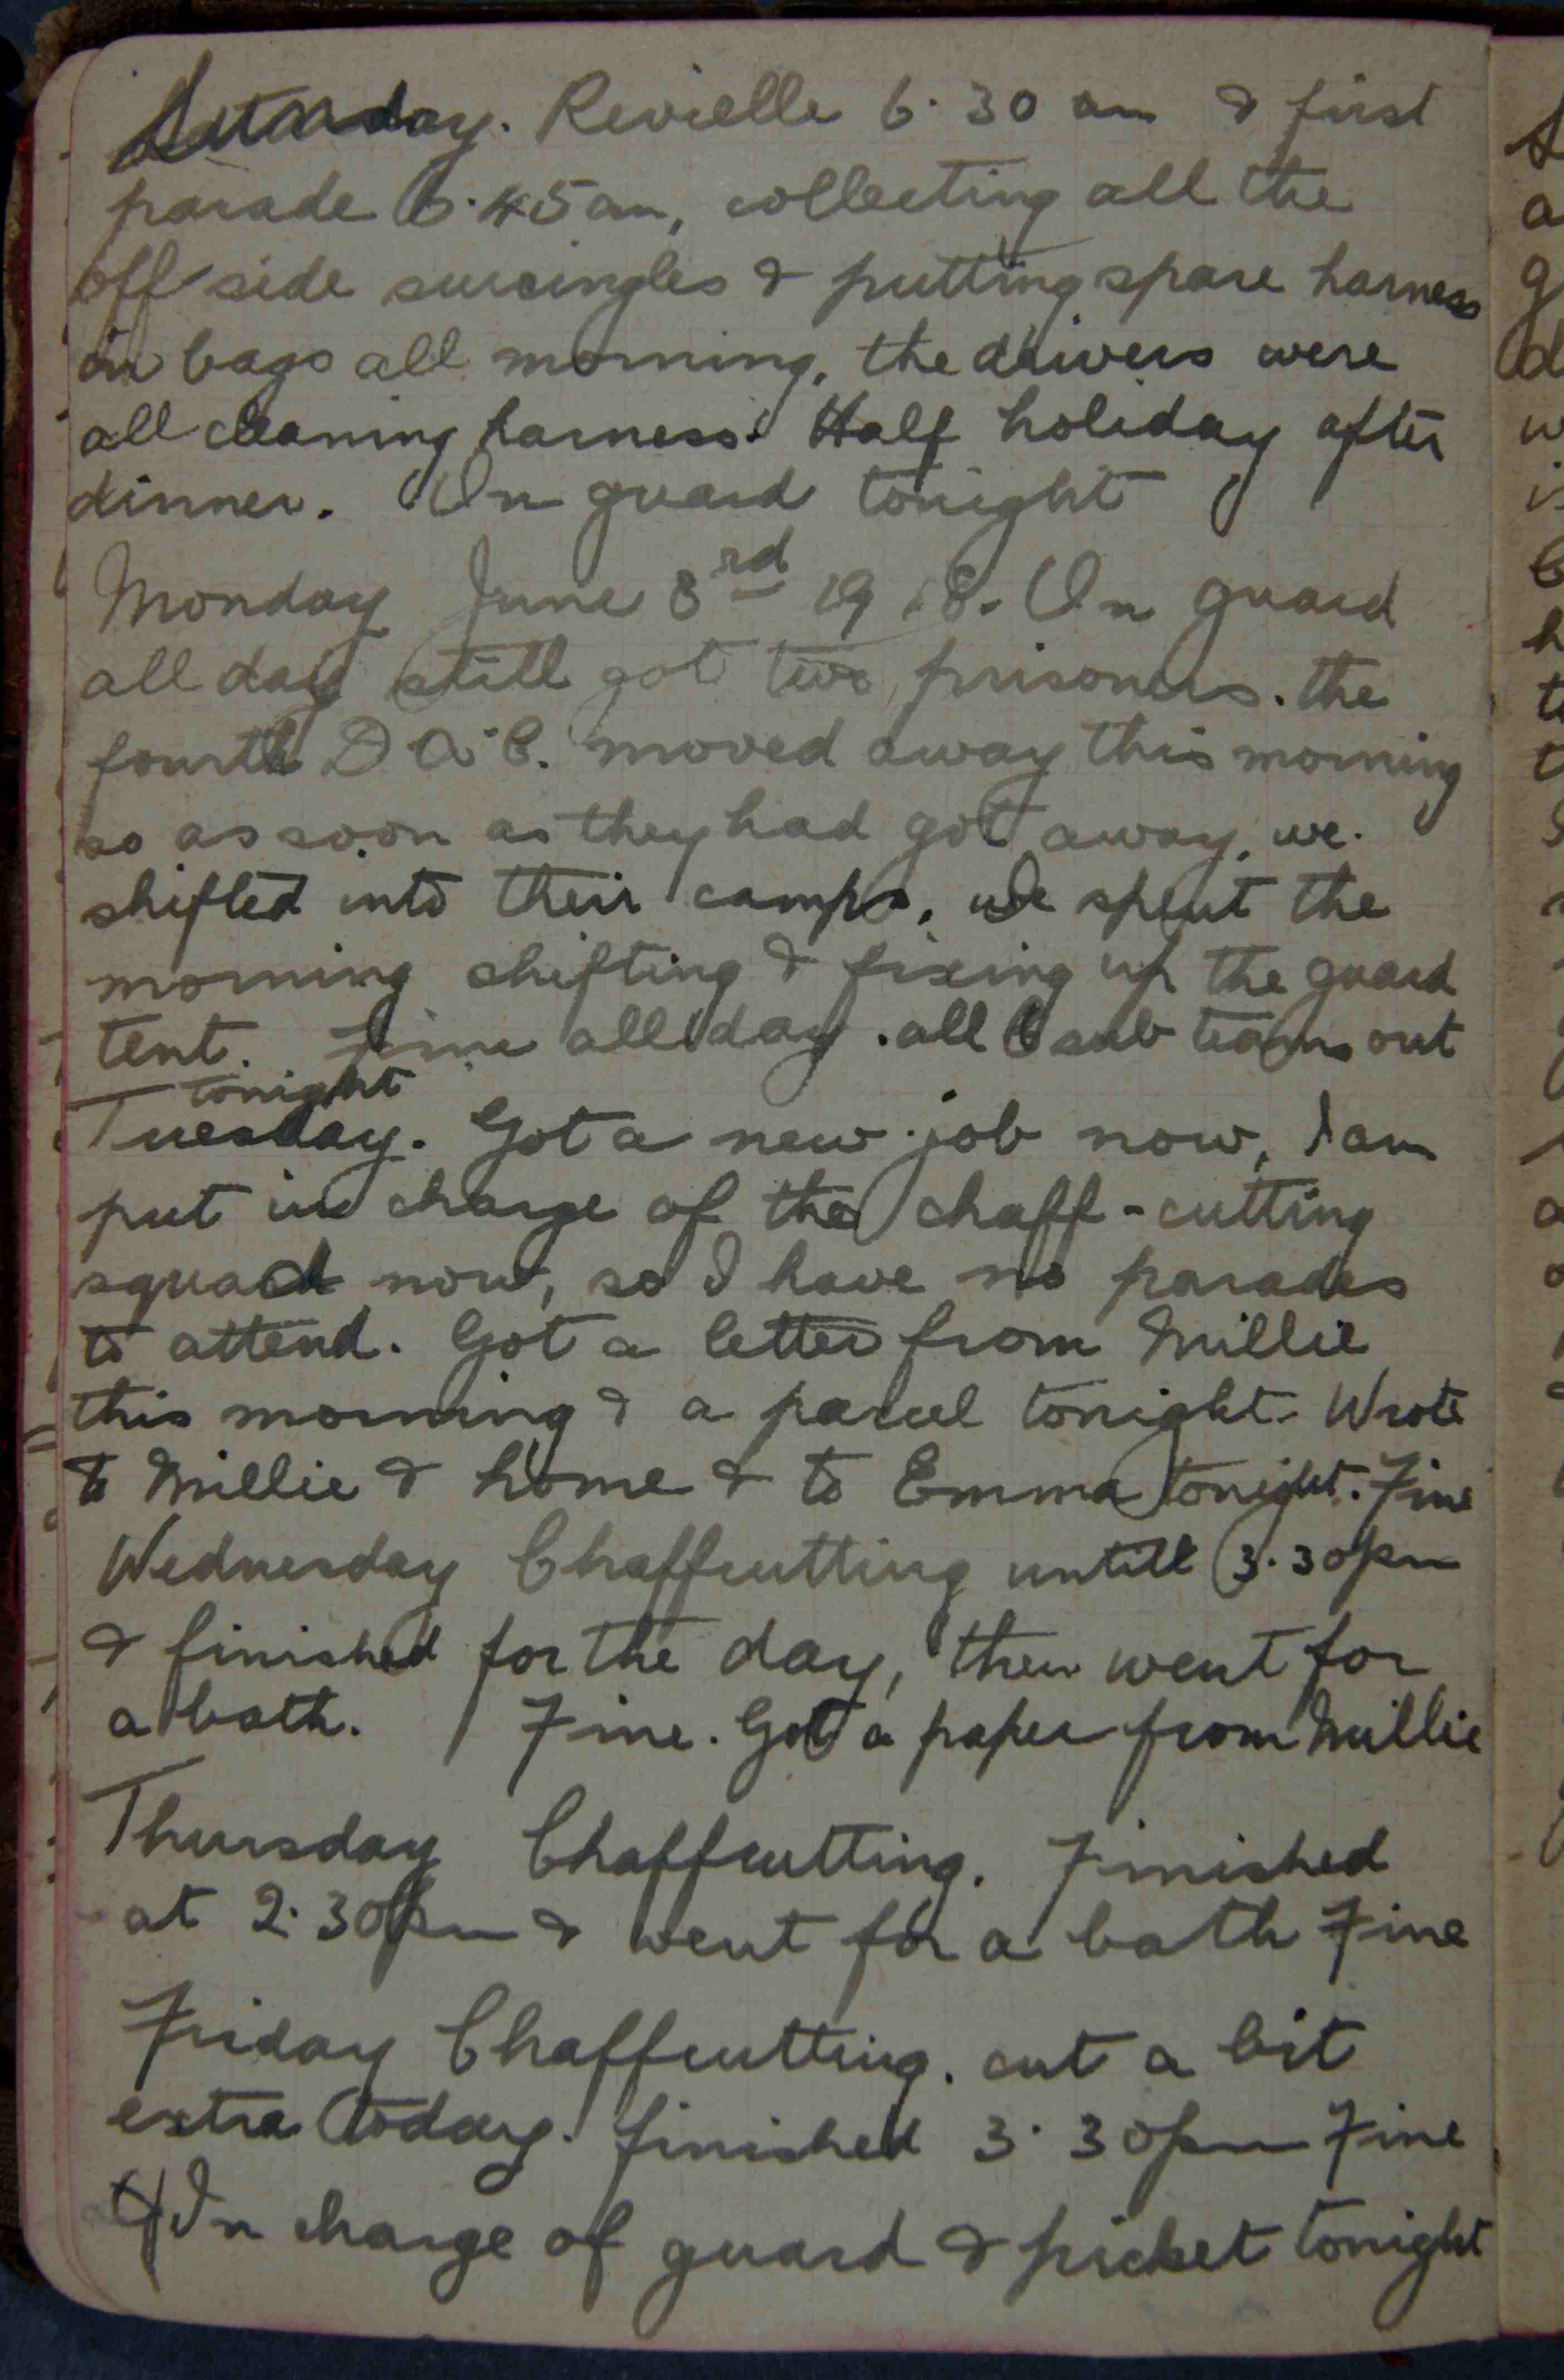 Sunday. Revielle 6.30 am & first
parade 6.45 am, collecting all the
off side surcingles & putting spare harness
in bags all morning, the drivers were
all cleaning harness. Half holiday after
dinner. On guard tonight
Monday June 3rd 1918. On guard
all day still got two prisoners. the
fourth D A C. moved away this morning
so as soon as they had got away, we
shifted into their camp, we spent the
morning shifting & fixing up the guard
tent. Fine all day. all C sub teams out
tonight
Tuesday. Got a new job now, I am
put in charge of the chaff-cutting
squad now, so I have no parades
to attend. Got a letter from Millie
this morning & a parcel tonight. Wrote
to Millie & home & to Emma tonight. Fine
Wednesday Chaffcutting untill 3.30pm
& finished for the day, then went for
a bath. Fine. Got a paper from Millie
Thursday Chaffcutting. Finished
at 2.30pm & went for a bath Fine
Friday Chaffcutting. cut a bit
extra today. finished 3.30pm Fine
In charge of guard & picket tonight